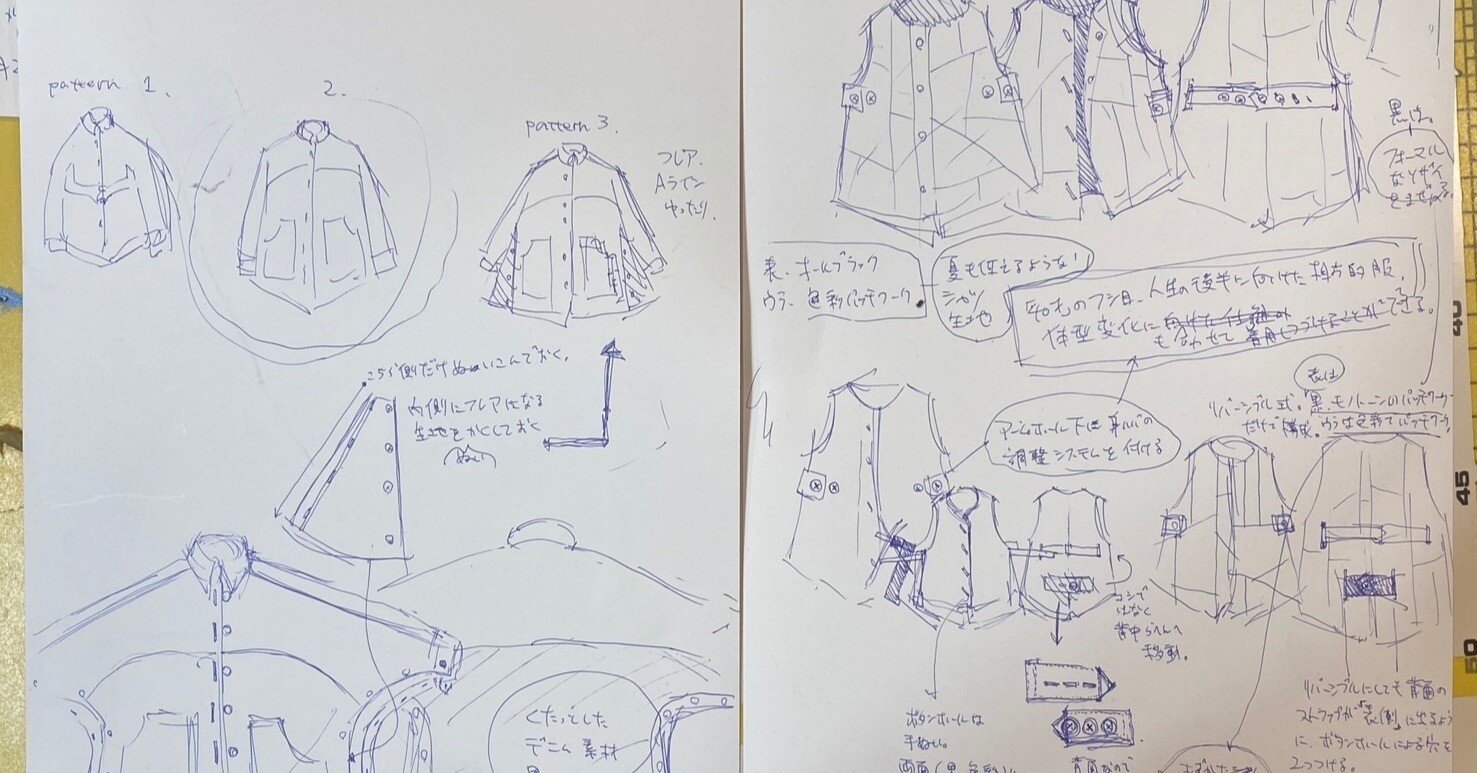 pattern 1.
2.
pattern 3.
フレア.
Aライン
ゆったり.
こちら側だけぬいこんでおく.
内側にフレアになる
生地をかくしておく
ぬい
くたっとした
デニム素材
黒は。
フォーマル
なデザイン
をまぜる。
表. オールブラック
ウラ. 色彩パッチワーク
夏も使えるような
シャツ
生地
40才のフシ目. 人生の後半に向けた相方的服.
体型変化に
も合わせて 着用しつづけることができる。
アームホール下に身ハバの
調整システムを付ける
表は
リバーシブル式。黒.モノトーンのパッチワーク
だけで構成。ウラは色彩でパッチワーク
コシで
はなく
背中らへんへ
移動。
ボタンホールは
手ぬい。
リバーシブルにしても背面の
ストラップが「表側」に出るよう
に、ボタンホールによる穴を
2つつける。
40
45
50